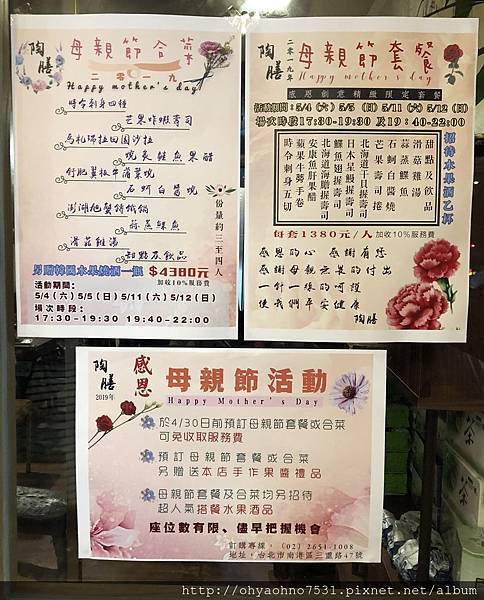 陶膳
母親節合菜
二零一九
Happy mother's day
時令刺身四種
芒果炸蝦壽司
馬札瑞拉田園沙拉
舒肥翼板牛蒲菜晚
石斛白醬晚
蒜蒸鰈魚
滑菇雞湯
甜點及飲品
份量約三至四人
另附韓國水果燒酒一瓶 $4380元
加收10%服務費
活動期間:
5/4(六) 5/5(日) 5/11(六) 5/12(日)
場次時段:
17:30-19:30 19:40-22:00
陶膳
二零一九年
母親節套餐
Happy mother's day
感恩創意精緻限定套餐
活動期間:5/4(六) 5/5(日) 5/11(六) 5/12(日)
場次時段17:30-19:30 及19:40-22:00
招待水果酒乙杯
甜點及飲品
滑菇雞湯
蒜蒸鰈魚
石斛白醬燒
芒果壽司捲
北海道干貝握壽司
日本星鰻握壽司
鰈魚翅握壽司
北海道海膽握壽司
安康魚肝果醋
蘋果牛蒡手卷
時令刺身五切
每套1380元/人 加收10%服務費
感恩的心 感謝有您
感謝母親無畏的付出
一針一線的呵護
使我們平安健康
陶膳
陶膳
2019年
感恩
母親節活動
Happy Mother's Day
於4/30日前預訂母親節套餐或合菜
可免收取服務費
預訂母親節套餐或合菜
另贈送本店手作果醬禮品
母親節套餐及合菜均另招待
超人氣搭餐水果酒品
座位數有限、儘早把握機會
訂購專線, (02) 2651-1008
地址, 台北市南港區三重路47號
http://ohyaohno7531.pixnet.net/album